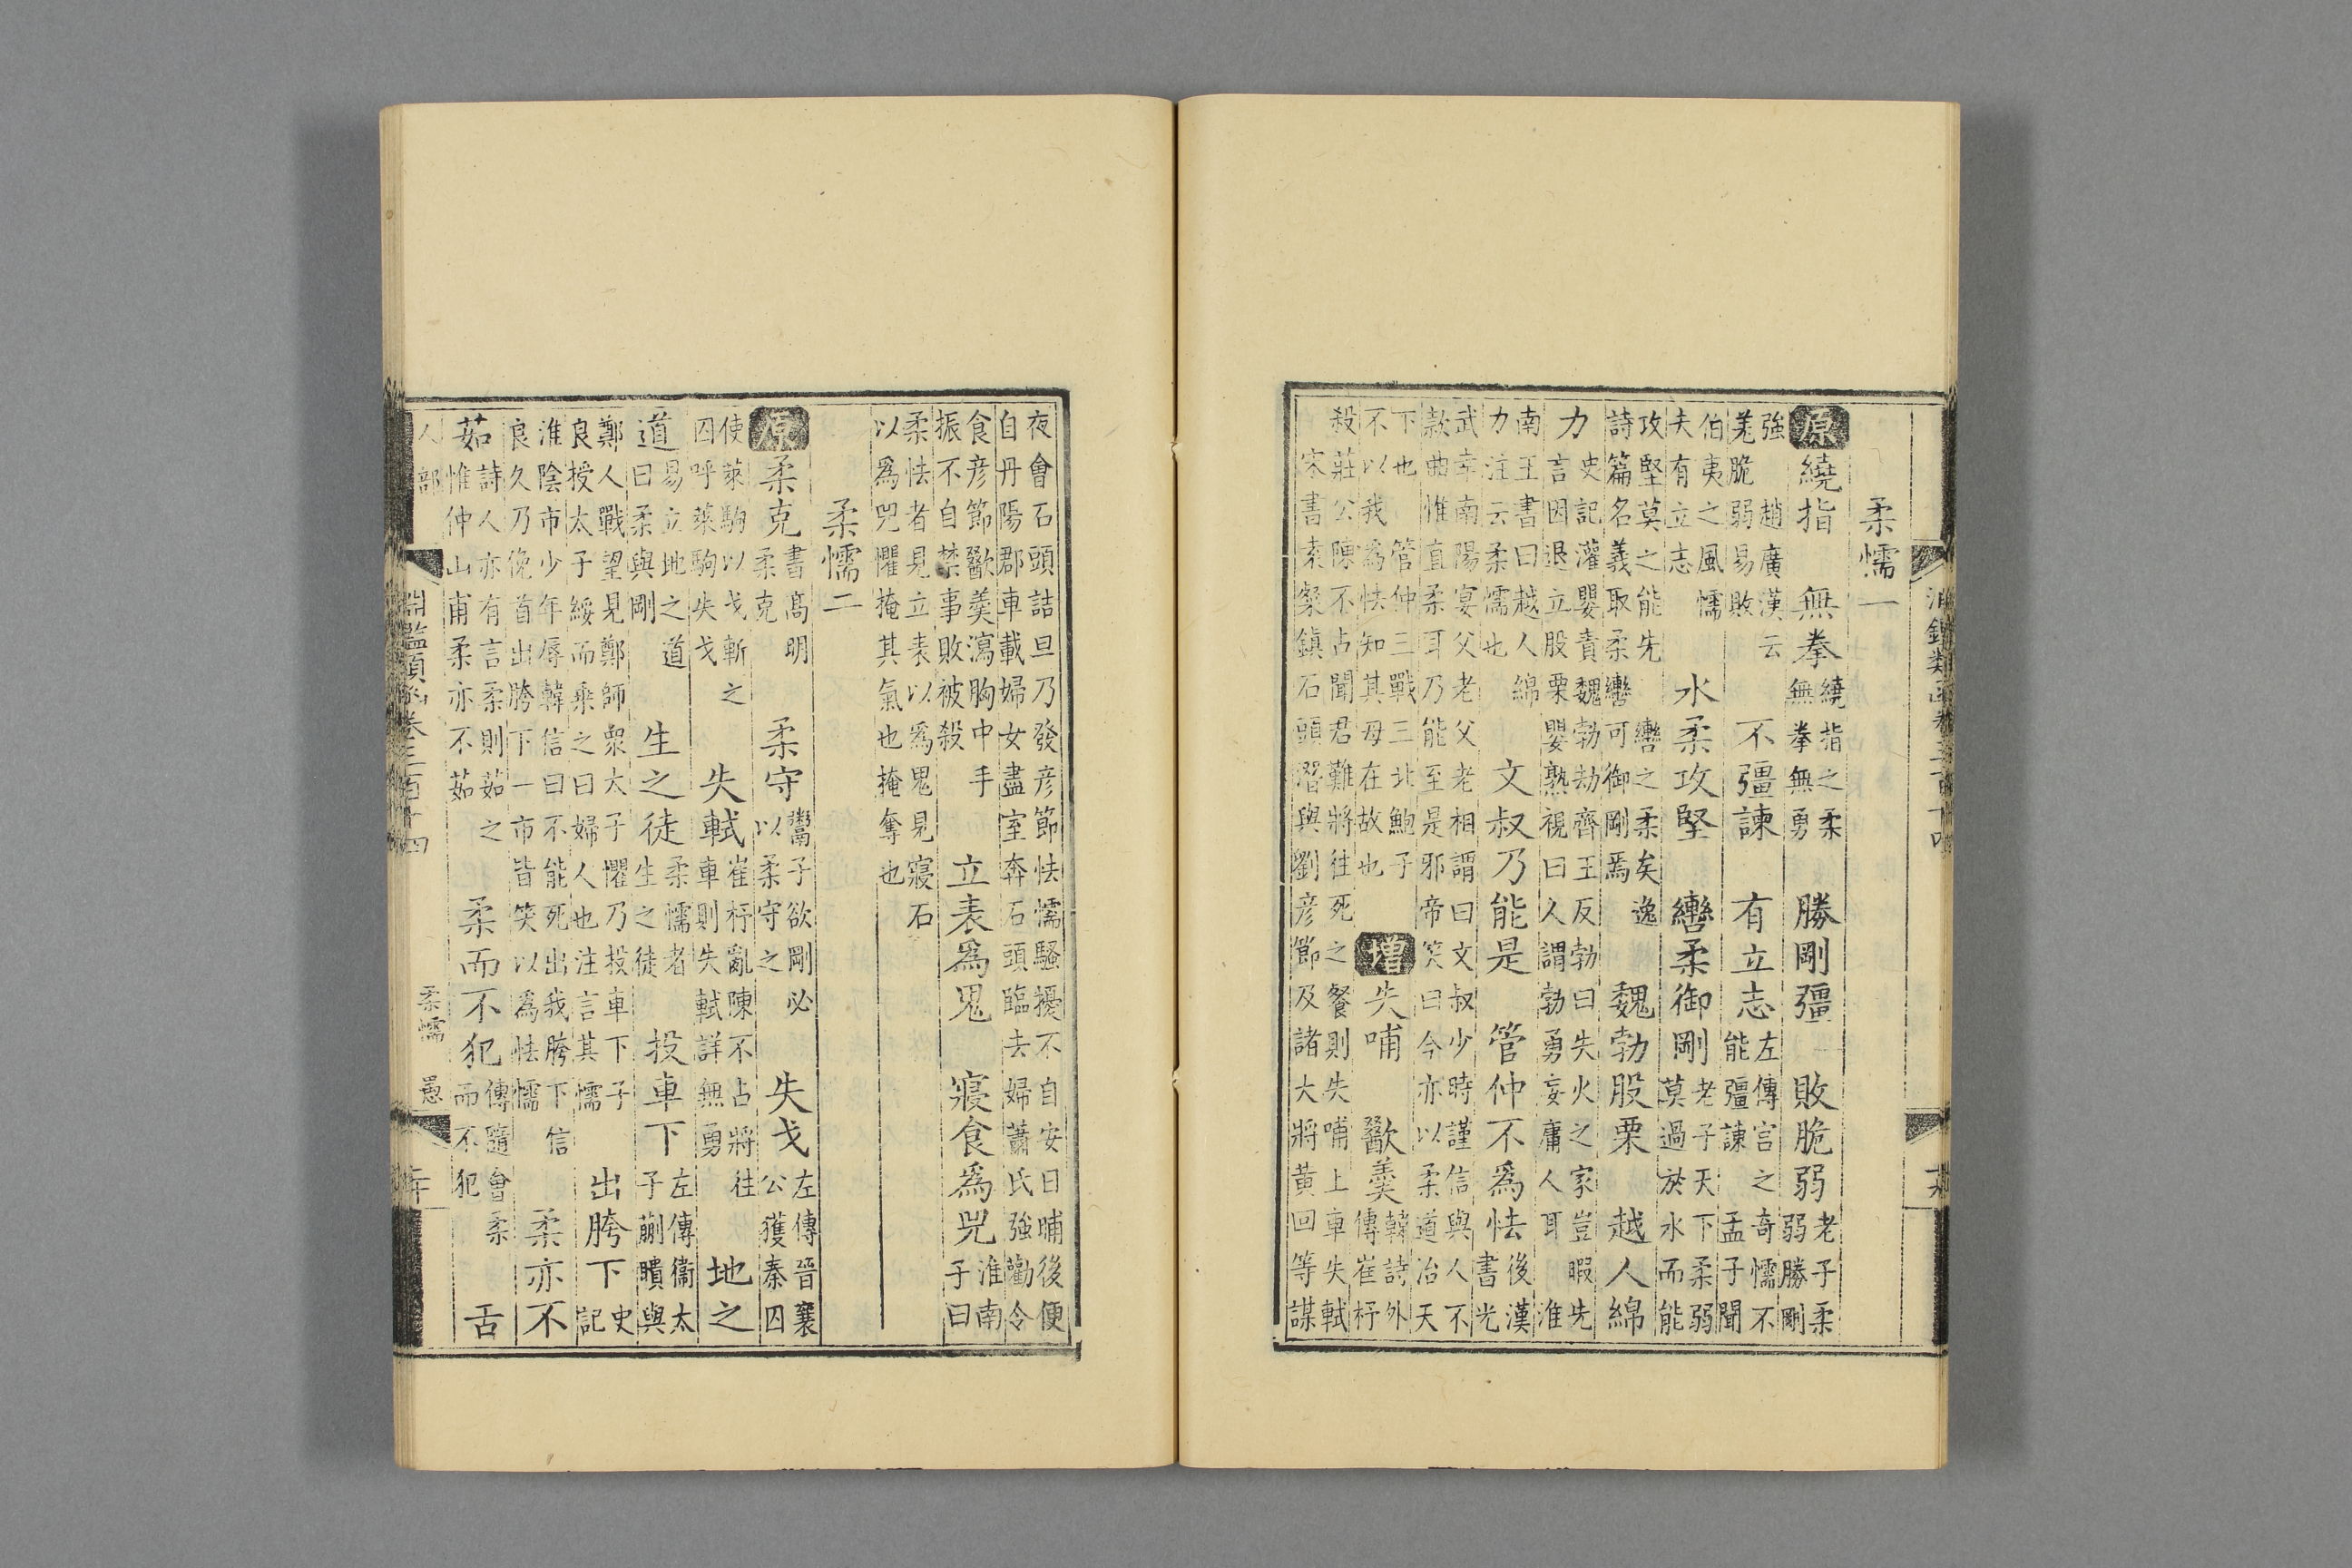 淵鑑類函卷三百十四
柔懦一
原繞指 無拳繞指之柔無拳無勇 勝剛彊 敗脆弱老子柔弱勝剛
強 趙廣漢云羌脆弱易敗 不彊諫 有立志左傳宫之奇懦不能彊諫 孟子聞
伯夷之風懦夫有立志 水柔攻堅 轡柔御剛老子天下柔弱莫過於水而能
攻堅莫之能先 轡之柔矣逸詩篇名義取柔轡可御剛焉 魏勃股栗 越人綿
力史記灌嬰責魏勃劫齊王反勃曰失火之家豈暇先言因退立股栗嬰熟視曰人謂勃勇妄庸人耳 淮
南王書曰越人綿力注云柔懦也 文叔乃能是 管仲不爲怯後漢書光
武幸南陽宴父老父老相謂曰文叔少時謹信與人不款曲惟直柔耳乃能至是邪帝笑曰今亦以柔道治天
下也 管仲三戰三北鮑子不以我爲怯知其母在故也 增失哺 歠羹韓詩外傳崔杼
殺莊公陳不占聞君難將往死之餐則失哺上車失軾 宋書袁粲鎮石頭潛與劉彦節及諸大將黄回等謀
夜會石頭詰旦乃發彦節怯懦騷擾不自安日晡後便自丹陽郡車載婦女盡室奔石頭臨去婦蕭氏強勸令
食彦節歠羹瀉胸中手振不自禁事敗被殺 立表爲鬼 寢食爲兕淮南子曰
柔怯者見立表以爲鬼見寢石以爲兕懼掩其氣也掩奪也
柔懦二
原柔克書高明柔克 柔守鬻子欲剛必以柔守之 失戈左傳晉襄公獲秦囚
使萊駒以戈斬之囚呼萊駒失戈 失軾崔杼亂陳不占將往車則失軾詳無勇 地之
道易立地之道曰柔與剛 生之徒柔懦者生之徒 投車下左傳衞太子蒯聵與
鄭人戰望見鄭師衆大子懼乃投車下子良授太子綏而乘之曰婦人也注言其懦 出胯下史記
淮陰市少年辱韓信曰不能死出我胯下信良久乃俛首出胯下一市皆笑以爲怯懦 柔亦不
茹詩人亦有言柔則茹之惟仲山甫柔亦不茹 柔而不犯傳隨會柔而不犯 舌
人部 淵鑑類函卷三百十四 柔懦 愚